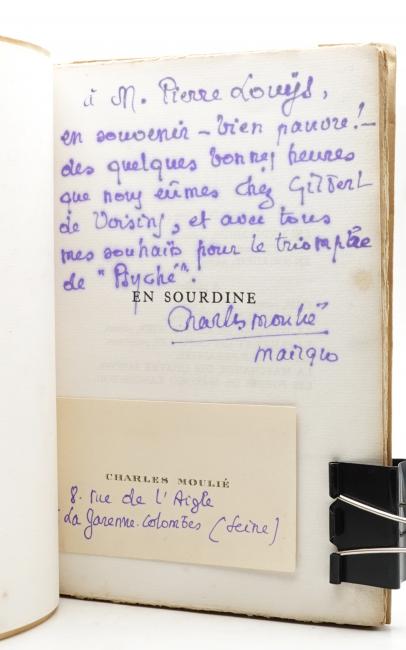 à M. Pierre Louÿs,
en souvenir – bien pauvre! –
des quelques bonnes heures
que nous eûmes chez Gilbert
de Voisins, et avec tous
mes souhaits pour le triomphe
de "Psyché".
EN SOURDINE
Charles Moulié
CHARLES MOULIÉ
8. rue de l'Aigle
La Garenne-Colombes (Seine)